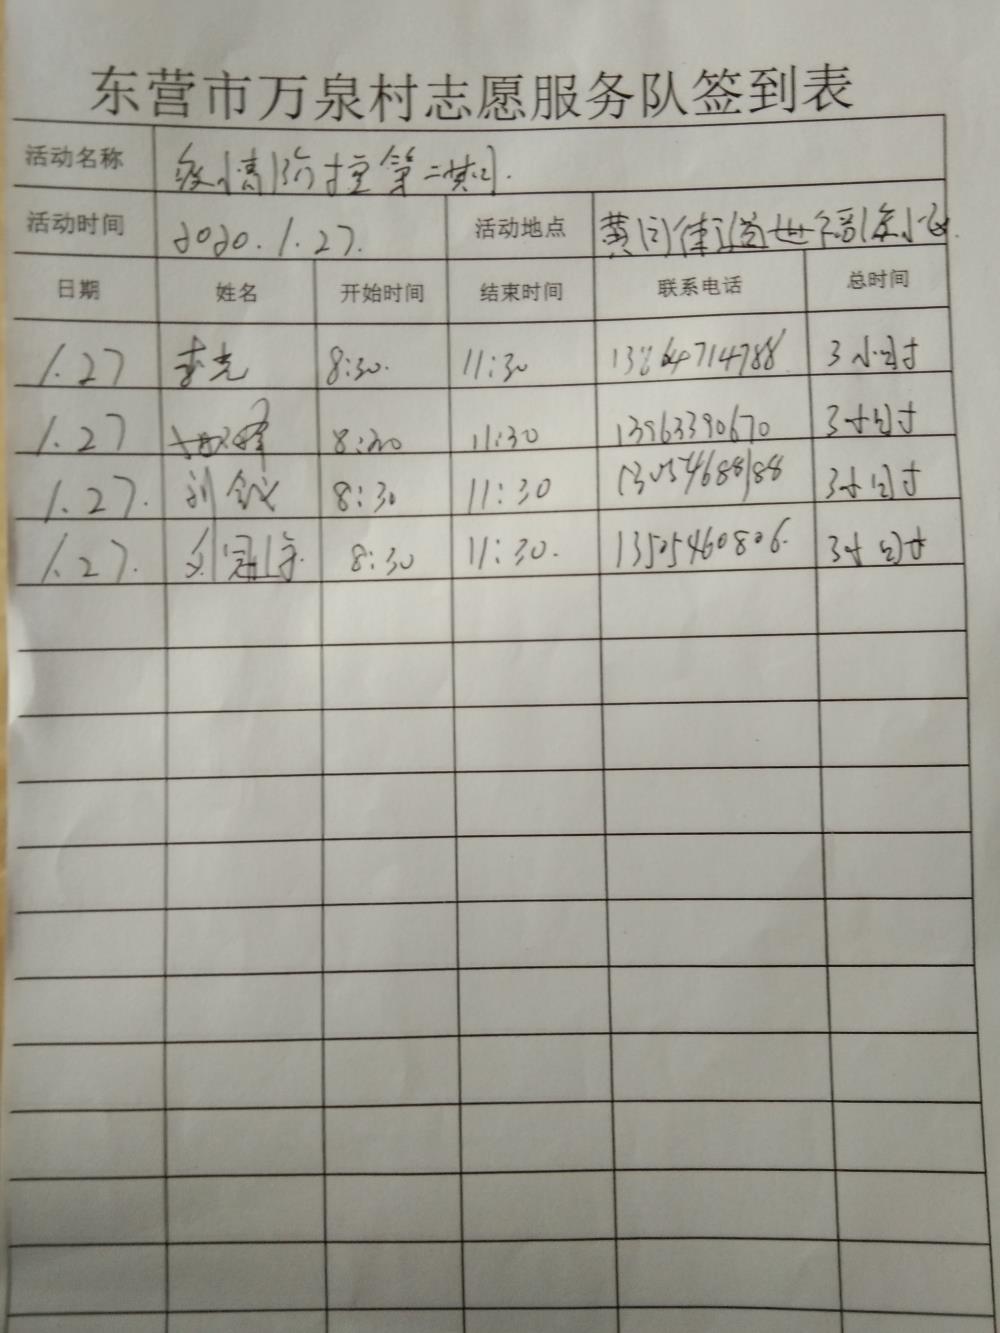 东营市万泉村志愿服务队签到表
活动名称 疫情防控第二期
活动时间 2020.1.27. 活动地点 黄河街道
日期 姓名 开始时间 结束时间 联系电话 总时间
1.27 李光 8:30. 11:30 13864714788 3小时
1.27 8:30 11:30 13963390670 3小时
1.27. 刘 8:30 11:30 13054688188 3小时
1.27. 刘 8:30 11:30. 13505460806. 3小时